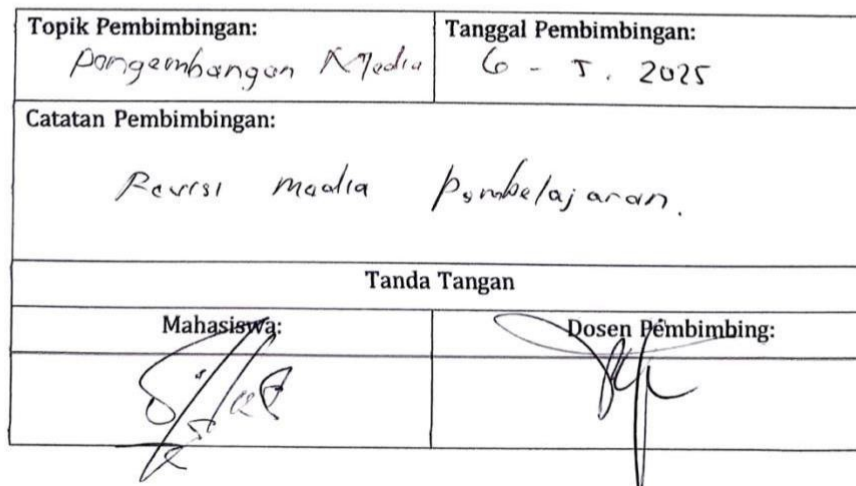 Topik Pembimbingan:
Pengembangan Media
Tanggal Pembimbingan:
6 - 5. 2025
Catatan Pembimbingan:
Revisi media Pembelajaran.
Tanda Tangan
Mahasiswa:
Dosen Pembimbing: